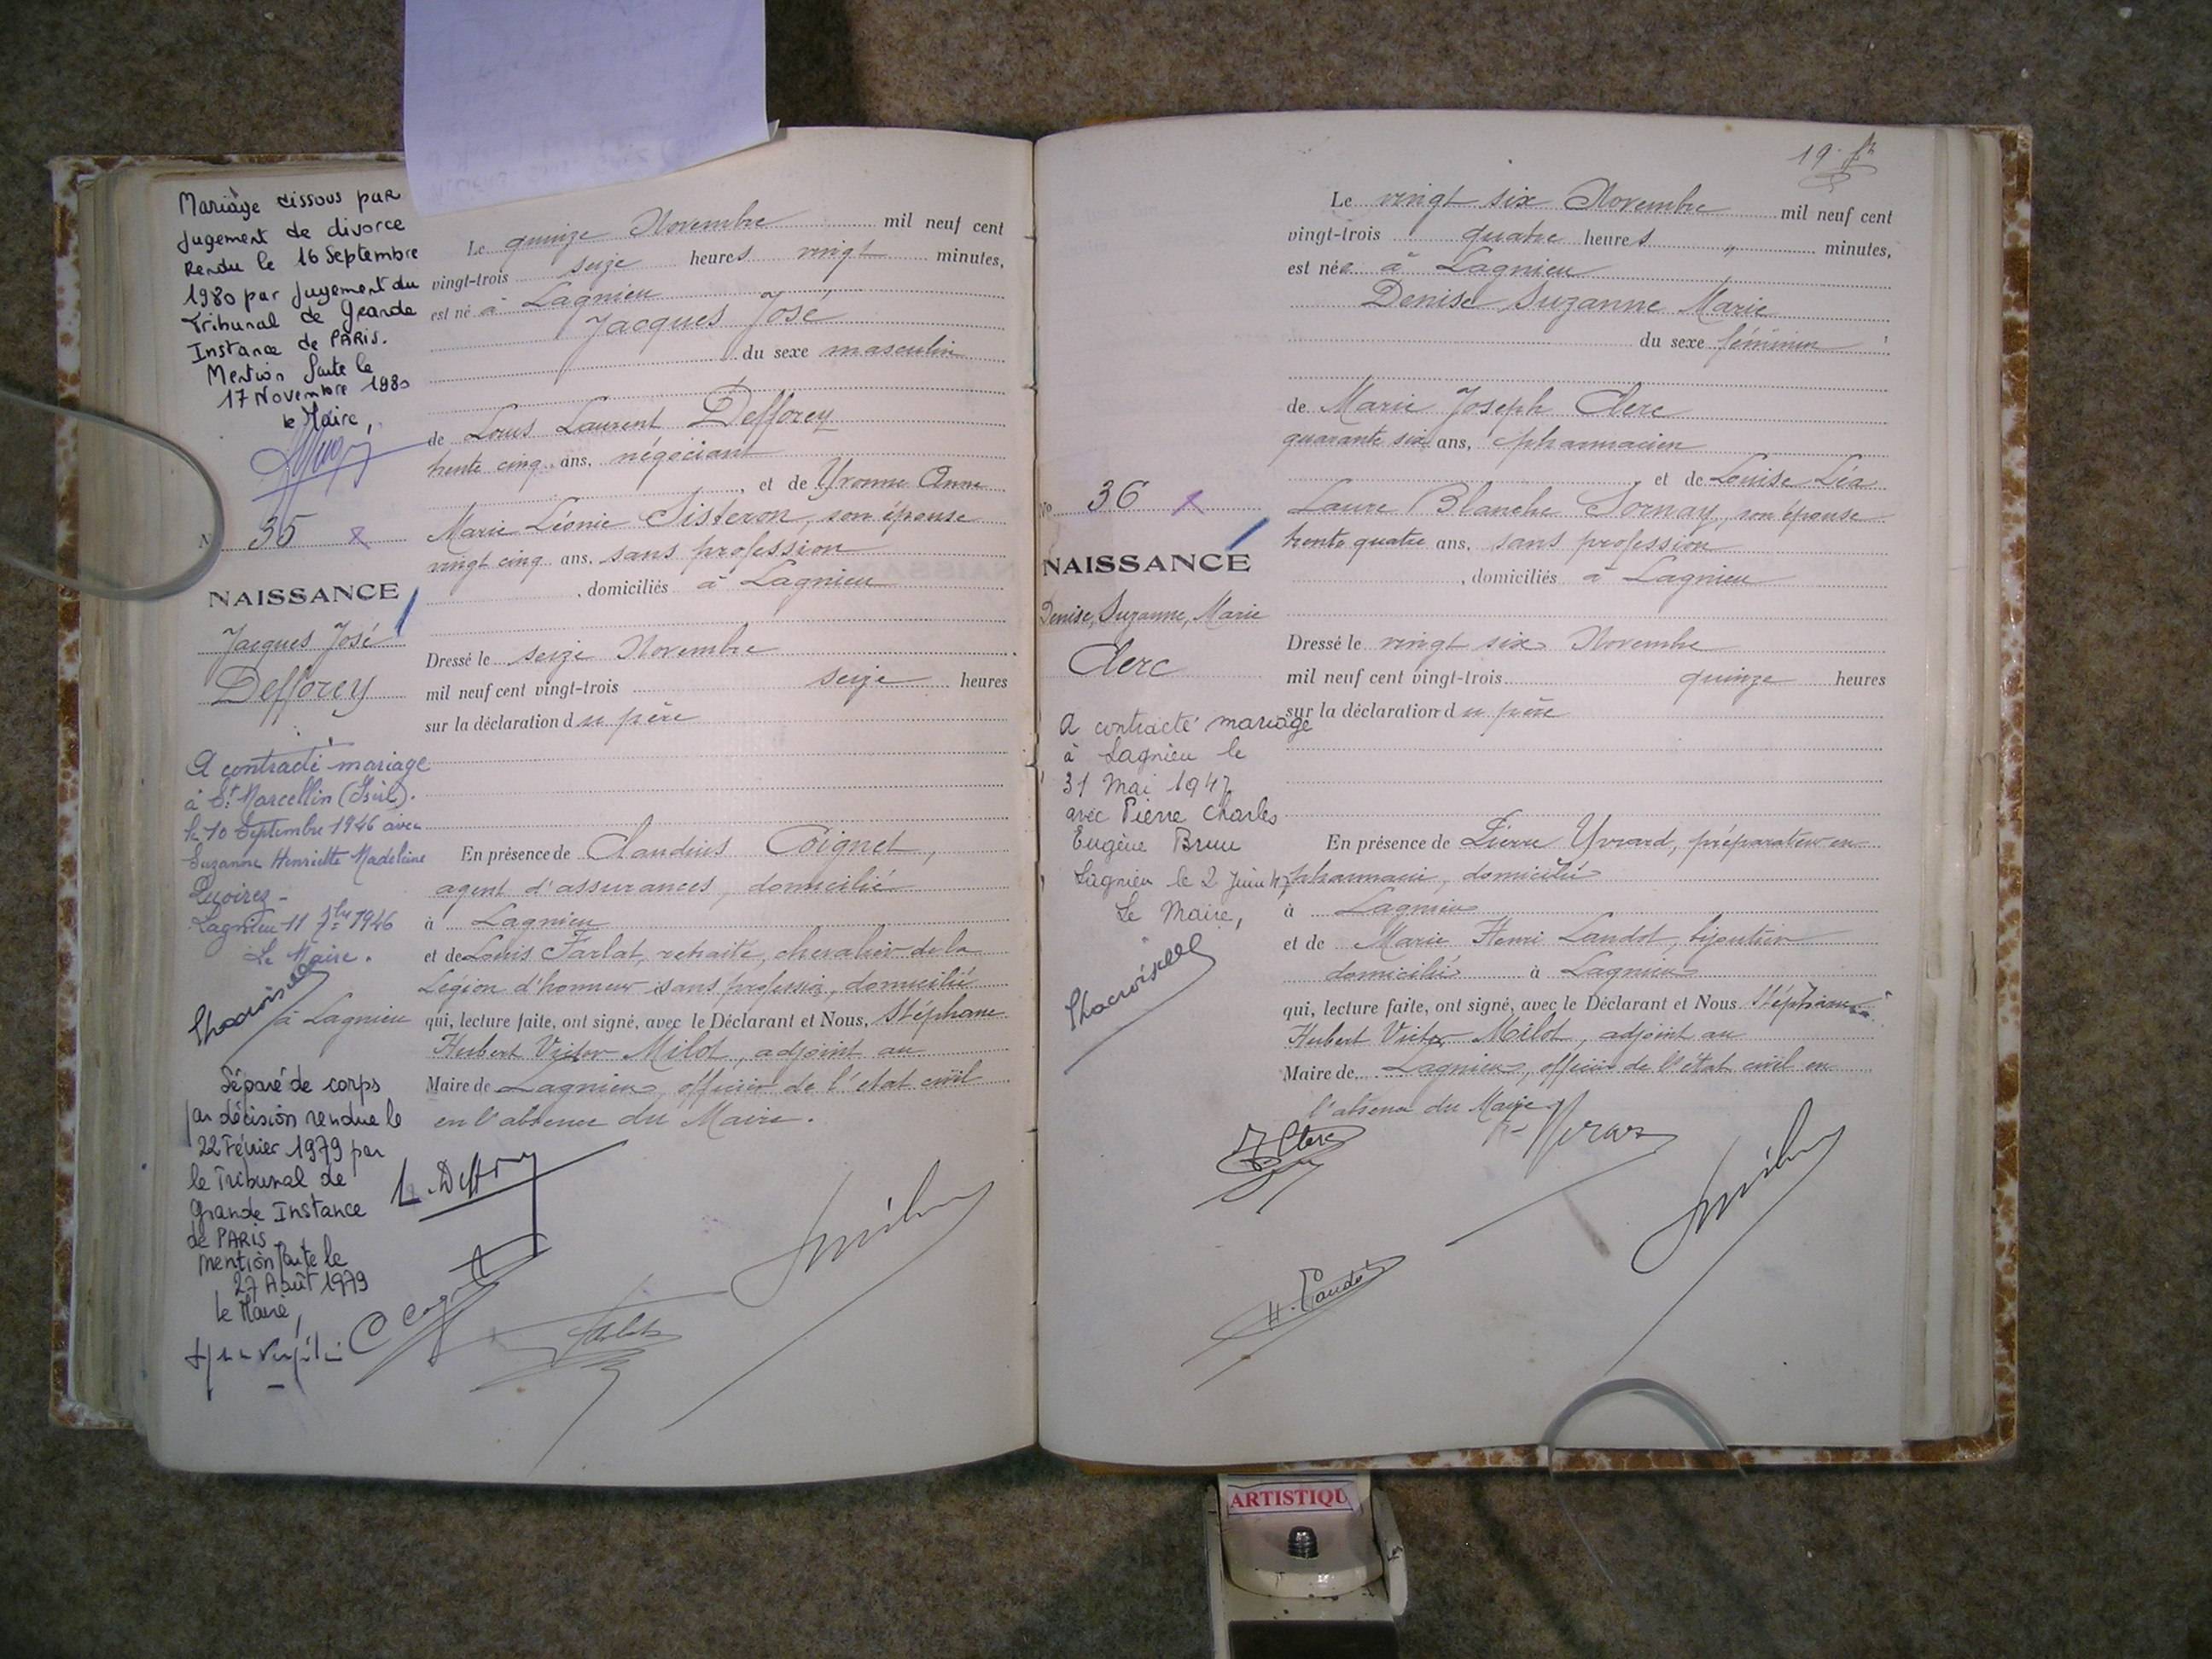 Mariage dissous par
jugement de divorce
Rendu le 16 Septembre
1980 par jugement du
Tribunal de Grande
Instance de PARIS.
Mention faite le
17 Novembre 1980
le Maire,
N 35
NAISSANCE
Jacques José
Defforey
A contracté mariage
à St Marcellin (Isère).
le 10 Septembre 1946 avec
Suzanne Henriette Madeleine
Lagnieu 11 7bre 1946
Le Maire.
à Lagnieu
Séparé de corps
par décision rendue le
22 Février 1979 par
le Tribunal de
Grande Instance
de PARIS
mention faite le
27 Août 1979
le Maire,
Le quinze Novembre mil neuf cent
vingt-trois seize heures vingt minutes,
est né à Lagnieu
Jacques José
du sexe masculin
de Louis Laurent Defforey
trente cinq ans, négociant
, et de Yvonne Anne
Marie Léonie Sisteron, son épouse
vingt cinq ans, sans profession
, domiciliés à Lagnieu
Dressé le seize Novembre
mil neuf cent vingt-trois seize heures
sur la déclaration du père
En présence de Claudius Coignet,
agent d'assurances, domicilié
à Lagnieu
et de Louis Farlat, retraité, chevalier de la
Légion d'honneur sans profession, domicilié
qui, lecture faite, ont signé, avec le Déclarant et Nous, Stéphane
Hubert Victor Milot, adjoint au
Maire de Lagnieu, officier de l'état civil
en l'absence du Maire.
19
Le vingt six Novembre mil neuf cent
vingt-trois quatre heures " minutes,
est née à Lagnieu
Denise Suzanne Marie
du sexe féminin
de Marie Joseph Clerc
quarante six ans, pharmacien
et de Louise Léa
Laure Blanche Sornay, son épouse
trente quatre ans, sans profession
, domiciliés à Lagnieu
Dressé le vingt six Novembre
mil neuf cent vingt-trois quinze heures
sur la déclaration du père
En présence de Pierre Yvrard, préparateur en
pharmacie, domicilié
à Lagnieu
et de Marie Henri Landot, bijoutier
domicilié à Lagnieu
qui, lecture faite, ont signé, avec le Déclarant et Nous Stéphane
Hubert Victor Milot, adjoint au
Maire de Lagnieu, officier de l'état civil en
l'absence du Maire
No 36
NAISSANCE
Denise, Suzanne, Marie
Clerc
A contracté mariage
à Lagnieu le
31 Mai 1947
avec Pierre Charles
Eugène Brun
Lagnieu le 2 Juin 47
Le Maire,
ARTISTIQU